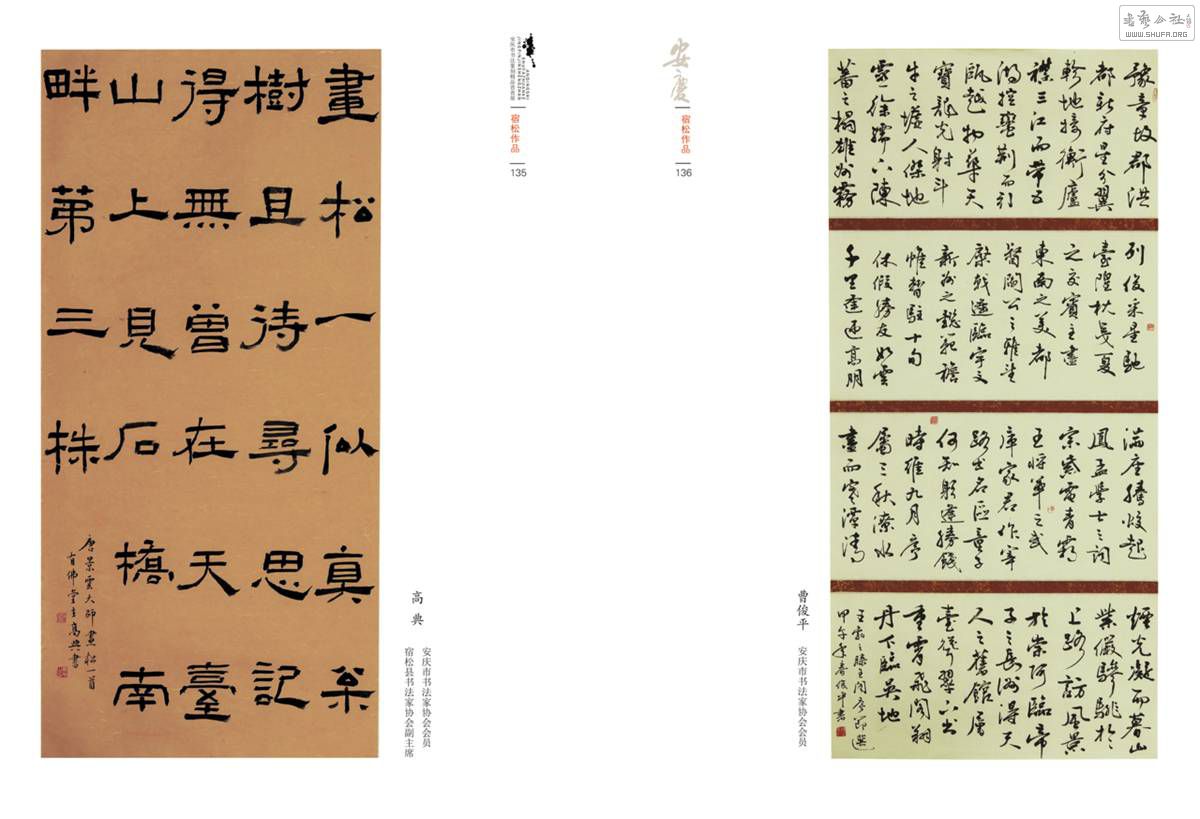 畫松一似真枀
樹且待尋思記
得無曾在天臺
山上見石橋南
畔第三株
唐景雲大師畫松一首
有佛堂主高典書
高典
安庆市书法家协会会员
宿松县书法家协会副主席
宿松作品
135
安慶
宿松作品
136
豫章故郡洪
都新府星分翼
軫地接衡廬
襟三江而帶五
湖控蠻荊而引
甌越物華天
寶龍光射斗
牛之墟人傑地
靈徐孺下陳
蕃之榻雄州霧
列俊采星馳
臺隍枕夷夏
之交賓主盡
東南之美都
督閻公之雅望
棨戟遙臨宇文
新州之懿範襜
帷暫駐十旬
休假勝友如雲
千里逢迎高朋
滿座騰蛟起
鳳孟學士之詞
宗紫電青霜
王將軍之武
庫家君作宰
路出名區童子
何知躬逢勝餞
時維九月序
屬三秋潦水
盡而寒潭清
煙光凝而暮山
紫儼驂騑於
上路訪風景
於崇阿臨帝
子之長洲得天
人之舊館層
臺聳翠上出
重霄飛閣翔
丹下臨無地
王勃之滕王閣序節選
甲午年春俊平書
曹俊平
安庆市书法家协会会员
书艺公社
WWW.SHUFA.ORG